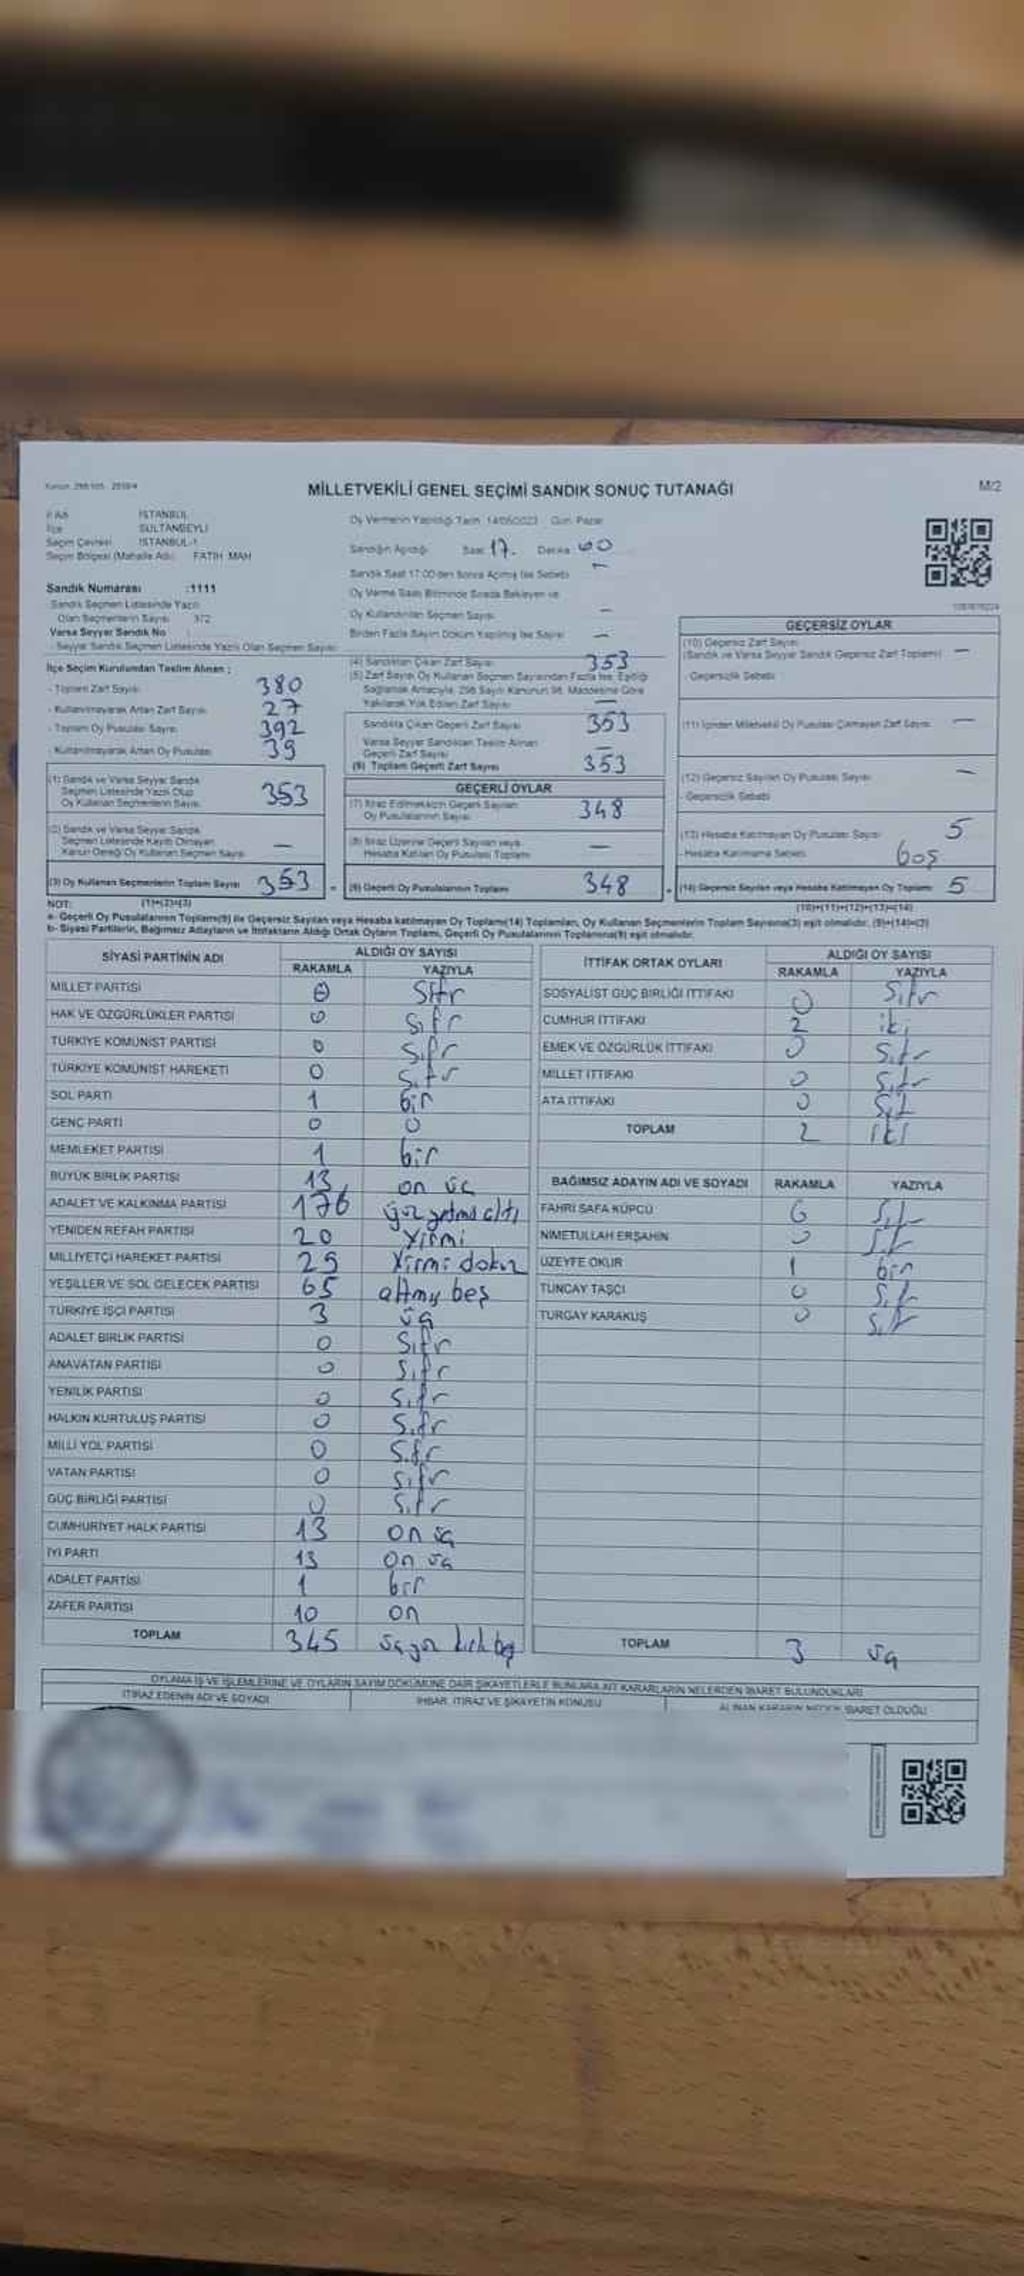 MİLLETVEKİLİ GENEL SEÇİMİ SANDIK SONUÇ TUTANAĞI
M/2
İl Adı İSTANBUL
İlçe SULTANBEYLİ
Seçim Çevresi İSTANBUL-1
Seçim Bölgesi (Mahalle Adı) FATİH MAH
Sandık Numarası :1111
Sandık Seçmen Listesinde Yazılı
Olan Seçmenlerin Sayısı 372
Varsa Seyyar Sandık No :
- Seyyar Sandık Seçmen Listesinde Yazılı Olan Seçmen Sayısı
Oy Vermenin Yapıldığı Tarih 14/05/2023 Gün Pazar
Sandığın Açıldığı Saat 17. Dakika 00
Sandık Saat 17:00'den Sonra Açılmış İse Sebebi —
Oy Verme Saati Bitiminde Sırada Bekleyen ve
Oy Kullandırılan Seçmen Sayısı —
Birden Fazla Sayım Döküm Yapılmış İse Sayısı —
İlçe Seçim Kurulundan Teslim Alınan :
- Toplam Zarf Sayısı 380
- Kullanılmayarak Artan Zarf Sayısı 27
- Toplam Oy Pusulası Sayısı 392
- Kullanılmayarak Artan Oy Pusulası 39
(1) Sandık ve Varsa Seyyar Sandık
Seçmen Listesinde Yazılı Olup
Oy Kullanan Seçmenlerin Sayısı 353
(2) Sandık ve Varsa Seyyar Sandık
Seçmen Listesinde Kaydı Olmayan
Kanun Gereği Oy Kullanan Seçmen Sayısı —
(3) Oy Kullanan Seçmenlerin Toplam Sayısı 353
(4) Sandıktan Çıkan Zarf Sayısı 353
(5) Zarf Sayısı Oy Kullanan Seçmen Sayısından Fazla İse, Eşitliği
Sağlamak Amacıyla, 298 Sayılı Kanunun 98. Maddesine Göre
Yakılarak Yok Edilen Zarf Sayısı —
Sandıkta Çıkan Geçerli Zarf Sayısı 353
Varsa Seyyar Sandıktan Teslim Alınan
Geçerli Zarf Sayısı —
Toplam Geçerli Zarf Sayısı 353
GEÇERLİ OYLAR
(7) İtiraz Edilmeksizin Geçerli Sayılan
Oy Pusulalarının Sayısı 348
(8) İtiraz Üzerine Geçerli Sayılan veya
Hesaba Katılan Oy Pusulası Toplamı —
Geçerli Oy Pusulalarının Toplamı 348
GEÇERSİZ OYLAR
(10) Geçersiz Zarf Sayısı
(Sandık ve Varsa Seyyar Sandık Geçersiz Zarf Toplamı) —
- Geçersizlik Sebebi
(11) İçinden Milletvekili Oy Pusulası Çıkmayan Zarf Sayısı —
(12) Geçersiz Sayılan Oy Pusulası Sayısı —
- Geçersizlik Sebebi
(13) Hesaba Katılmayan Oy Pusulası Sayısı 5
- Hesaba Katılmama Sebebi boş
(14) Geçersiz Sayılan veya Hesaba Katılmayan Oy Toplamı 5
NOT: (1)+(2)=(3)
(10)+(11)+(12)+(13)=(14)
a- Geçerli Oy Pusulalarının Toplamı(9) ile Geçersiz Sayılan veya Hesaba katılmayan Oy Toplamı(14) Toplamları, Oy Kullanan Seçmenlerin Toplam Sayısına(3) eşit olmalıdır. (9)+(14)=(3)
b- Siyasi Partilerin, Bağımsız Adayların ve İttifakların Aldığı Ortak Oyların Toplamı, Geçerli Oy Pusulalarının Toplamına(9) eşit olmalıdır.
SİYASİ PARTİNİN ADI ALDIĞI OY SAYISI
RAKAMLA YAZIYLA
MİLLET PARTİSİ 0 Sıfır
HAK VE ÖZGÜRLÜKLER PARTİSİ 0 Sıfr
TÜRKİYE KOMÜNİST PARTİSİ 0 Sıfr
TÜRKİYE KOMÜNİST HAREKETİ 0 Sıfr
SOL PARTİ 1 bir
GENÇ PARTİ 0 0
MEMLEKET PARTİSİ 1 bir
BÜYÜK BİRLİK PARTİSİ 13 on üç
ADALET VE KALKINMA PARTİSİ 176 yüz yetmiş altı
YENİDEN REFAH PARTİSİ 20 Yirmi
MİLLİYETÇİ HAREKET PARTİSİ 29 Yirmi dokuz
YEŞİLLER VE SOL GELECEK PARTİSİ 65 altmış beş
TÜRKİYE İŞÇİ PARTİSİ 3 üç
ADALET BİRLİK PARTİSİ 0 Sıfr
ANAVATAN PARTİSİ 0 Sıfr
YENİLİK PARTİSİ 0 Sıfr
HALKIN KURTULUŞ PARTİSİ 0 Sıfr
MİLLİ YOL PARTİSİ 0 Sıfr
VATAN PARTİSİ 0 Sıfr
GÜÇ BİRLİĞİ PARTİSİ 0 Sıfr
CUMHURİYET HALK PARTİSİ 13 on üç
İYİ PARTİ 13 on üç
ADALET PARTİSİ 1 bir
ZAFER PARTİSİ 10 on
TOPLAM 345 üçyüz kırk beş
İTTİFAK ORTAK OYLARI ALDIĞI OY SAYISI
RAKAMLA YAZIYLA
SOSYALİST GÜÇ BİRLİĞİ İTTİFAKI 0 Sıfr
CUMHUR İTTİFAKI 2 iki
EMEK VE ÖZGÜRLÜK İTTİFAKI 0 Sıfr
MİLLET İTTİFAKI 0 Sıfr
ATA İTTİFAKI 0
TOPLAM 2 iki
BAĞIMSIZ ADAYIN ADI VE SOYADI RAKAMLA YAZIYLA
FAHRİ SAFA KÜPCÜ
NİMETULLAH ERŞAHİN 0
ÜZEYFE OKUR 1 bir
TUNCAY TAŞÇI 0
TURGAY KARAKUŞ 0
TOPLAM 3 üç
OYLAMA İŞ VE İŞLEMLERİNE VE OYLARIN SAYIM DÖKÜMÜNE DAİR ŞİKAYETLERLE BUNLARA AİT KARARLARIN NELERDEN İBARET BULUNDUKLARI
İTİRAZ EDENİN ADI VE SOYADI İHBAR, İTİRAZ VE ŞİKAYETİN KONUSU ALINAN KARARIN NEDEN İBARET OLDUĞU